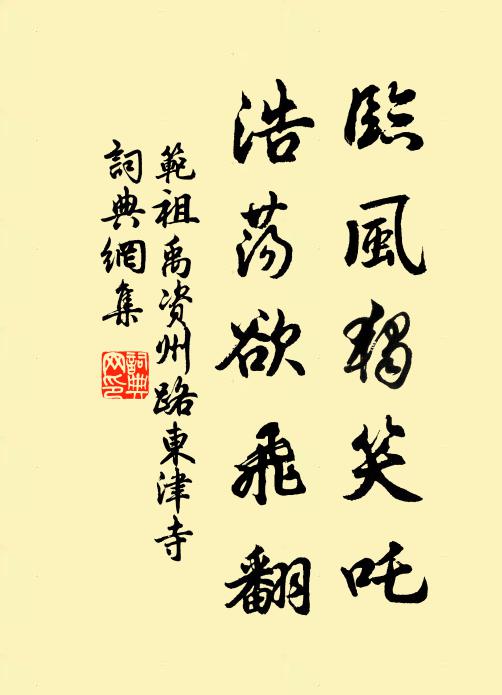 臨風獨笑吒
浩蕩欲飛翻
範祖禹資州路東津寺
詞典網集
詞典网印